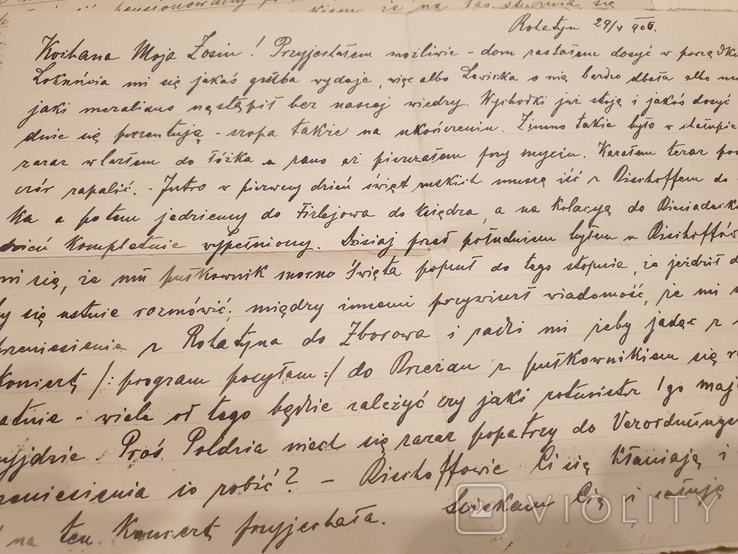 Rohatyn 29/V 906.
Kochana Moja Zosiu! Przyjechałem możliwie - dom zastałem dosyć w porządku
mi się jakaś wydaje, więc albo Lewicka o nią bardzo dbała albo
jaki moralians nastąpił bez naszej wiedzy. Wychodki już stoją i jakoś dosyć
dnie się prezentują - szopa także na ukończeniu. Zimno takie było w
zaraz wlazłem do łóżka a rano aż pierzastem przy myciu. Kazałem zaraz
czór zapalić. - Jutro w pierwszy dzień świąt ruskich muszę iść z Bischoffem do
ka a potem jedziemy do Firlejowa do księdza, a na kolację do
dzień kompletnie wypełniony. Dzisiaj przed południem byłem u Bischoffów
mi się, że mu pułkownik mocno święta popsuł do tego stopnia, że jeździł
by się ustnie rozmówić; między innemi przywiózł wiadomość, że mi
przeniesienia z Rohatyna do Zborowa i radzi mi żeby jadąc z
Koncert /: program posyłam :/ do Brzeżan z pułkownikiem się
- wiele od tego będzie zależyć czy jaki rotmistrz 1go maja
yjdzie. Proś Poldzia niech się zaraz popatrzy do Verordnungs
przeniesienia co robić? - Bischoffowie Ci się kłaniają i
na ten Koncert przyjechała. Ściskam Cię i całuję
VIOLITY